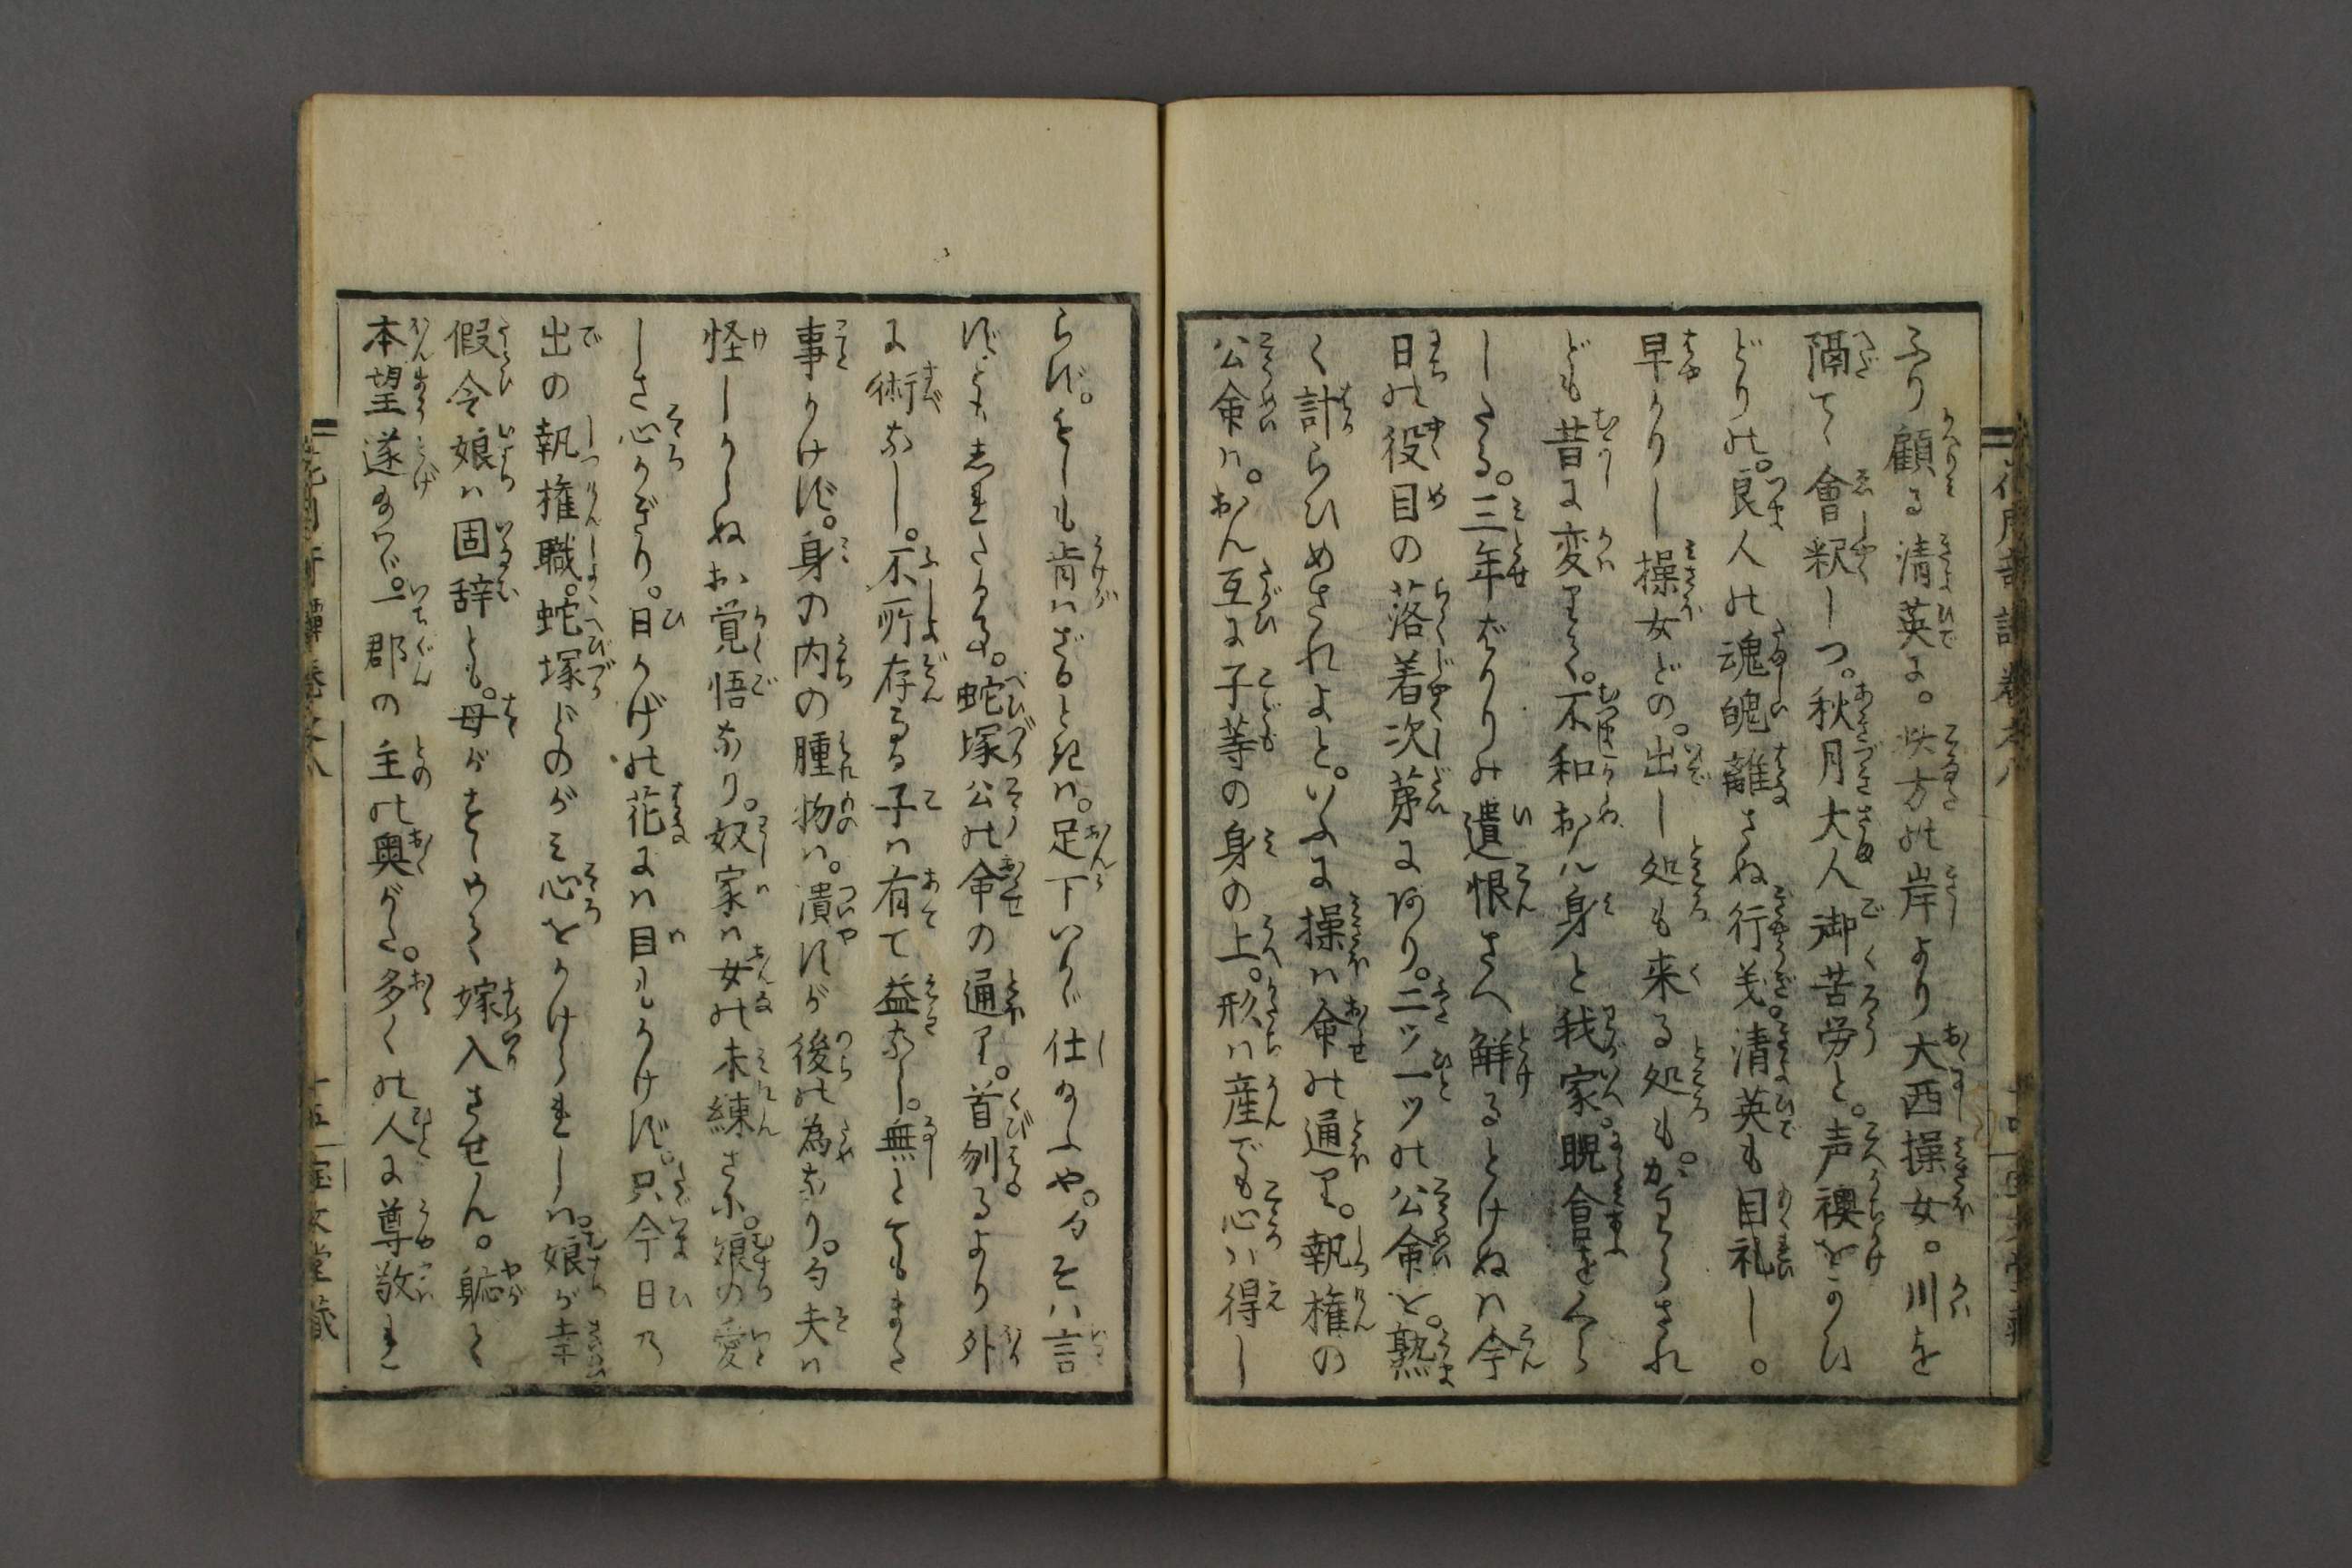 ふり顧る清英に。此方の岸より大西操女。川を
隔て会釈しつ。秋月大人御苦労と。声襖をかひ
どりの。良人の魂魄離さぬ行義。清英も目礼し。
早かりし操女どの。出し処も来る処も。がはらされ
ども昔に変りて。不和なル身と我家。睨會をくら
したる。三年ばかりの遺恨さへ觧るとけぬハ今
日の役目の落着次第にあり。二ツ一ツの公命を。熟
く計らひめされよと。いふに操ハ命の通り。執権の
公命ハ。おん互に子等の身の上。形ハ産でも心ハ得し
らず。もしも肯ハざるときハ。足下いかゞ仕給ふや。ヲそハ言
ずともしれたる事。蛇塚公の命の通り。首刎るより外
に術なし。不所存なる子ハ有て益なし。無とてもまた
事かけず。身の内の腫物ハ。潰すが後の為なり。ヲ夫ハ
怪しからぬお覚悟なり。奴家ハ女の未練さに。娘の愛
しさ心かぎり。日かげの花にハ目もかけず。只今日乃
出の執権職。蛇塚どのがミ心をかけられしハ。娘が幸
假令娘ハ固辞とも。母がすゝめて嫁入させん。軈て
本望遂給ハヾ。一郡の主の奥がた。多くの人に尊敬れ